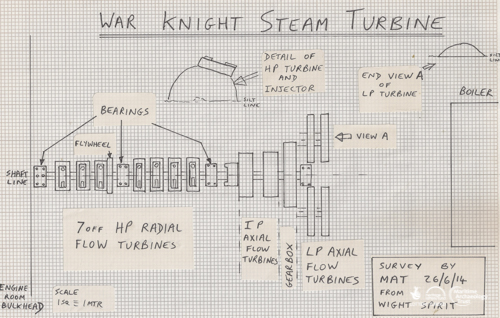 WAR KNIGHT STEAM TURBINE
DETAIL OF
HP TURBINE
AND
INJECTOR
SILT
LINE
END VIEW A
OF
LP TURBINE
SILT
LINE
BOILER
BEARINGS
FLYWHEEL
VIEW A
SHAFT
LINE
7 OFF HP RADIAL
FLOW TURBINES
IP
AXIAL
FLOW
TURBINES
GEARBOX
LP AXIAL
FLOW
TURBINES
ENGINE
ROOM
BULKHEAD
SCALE
1 SQ ≡ 1 MTR
SURVEY BY
MAT 26/6/14
FROM
WIGHT SPIRIT